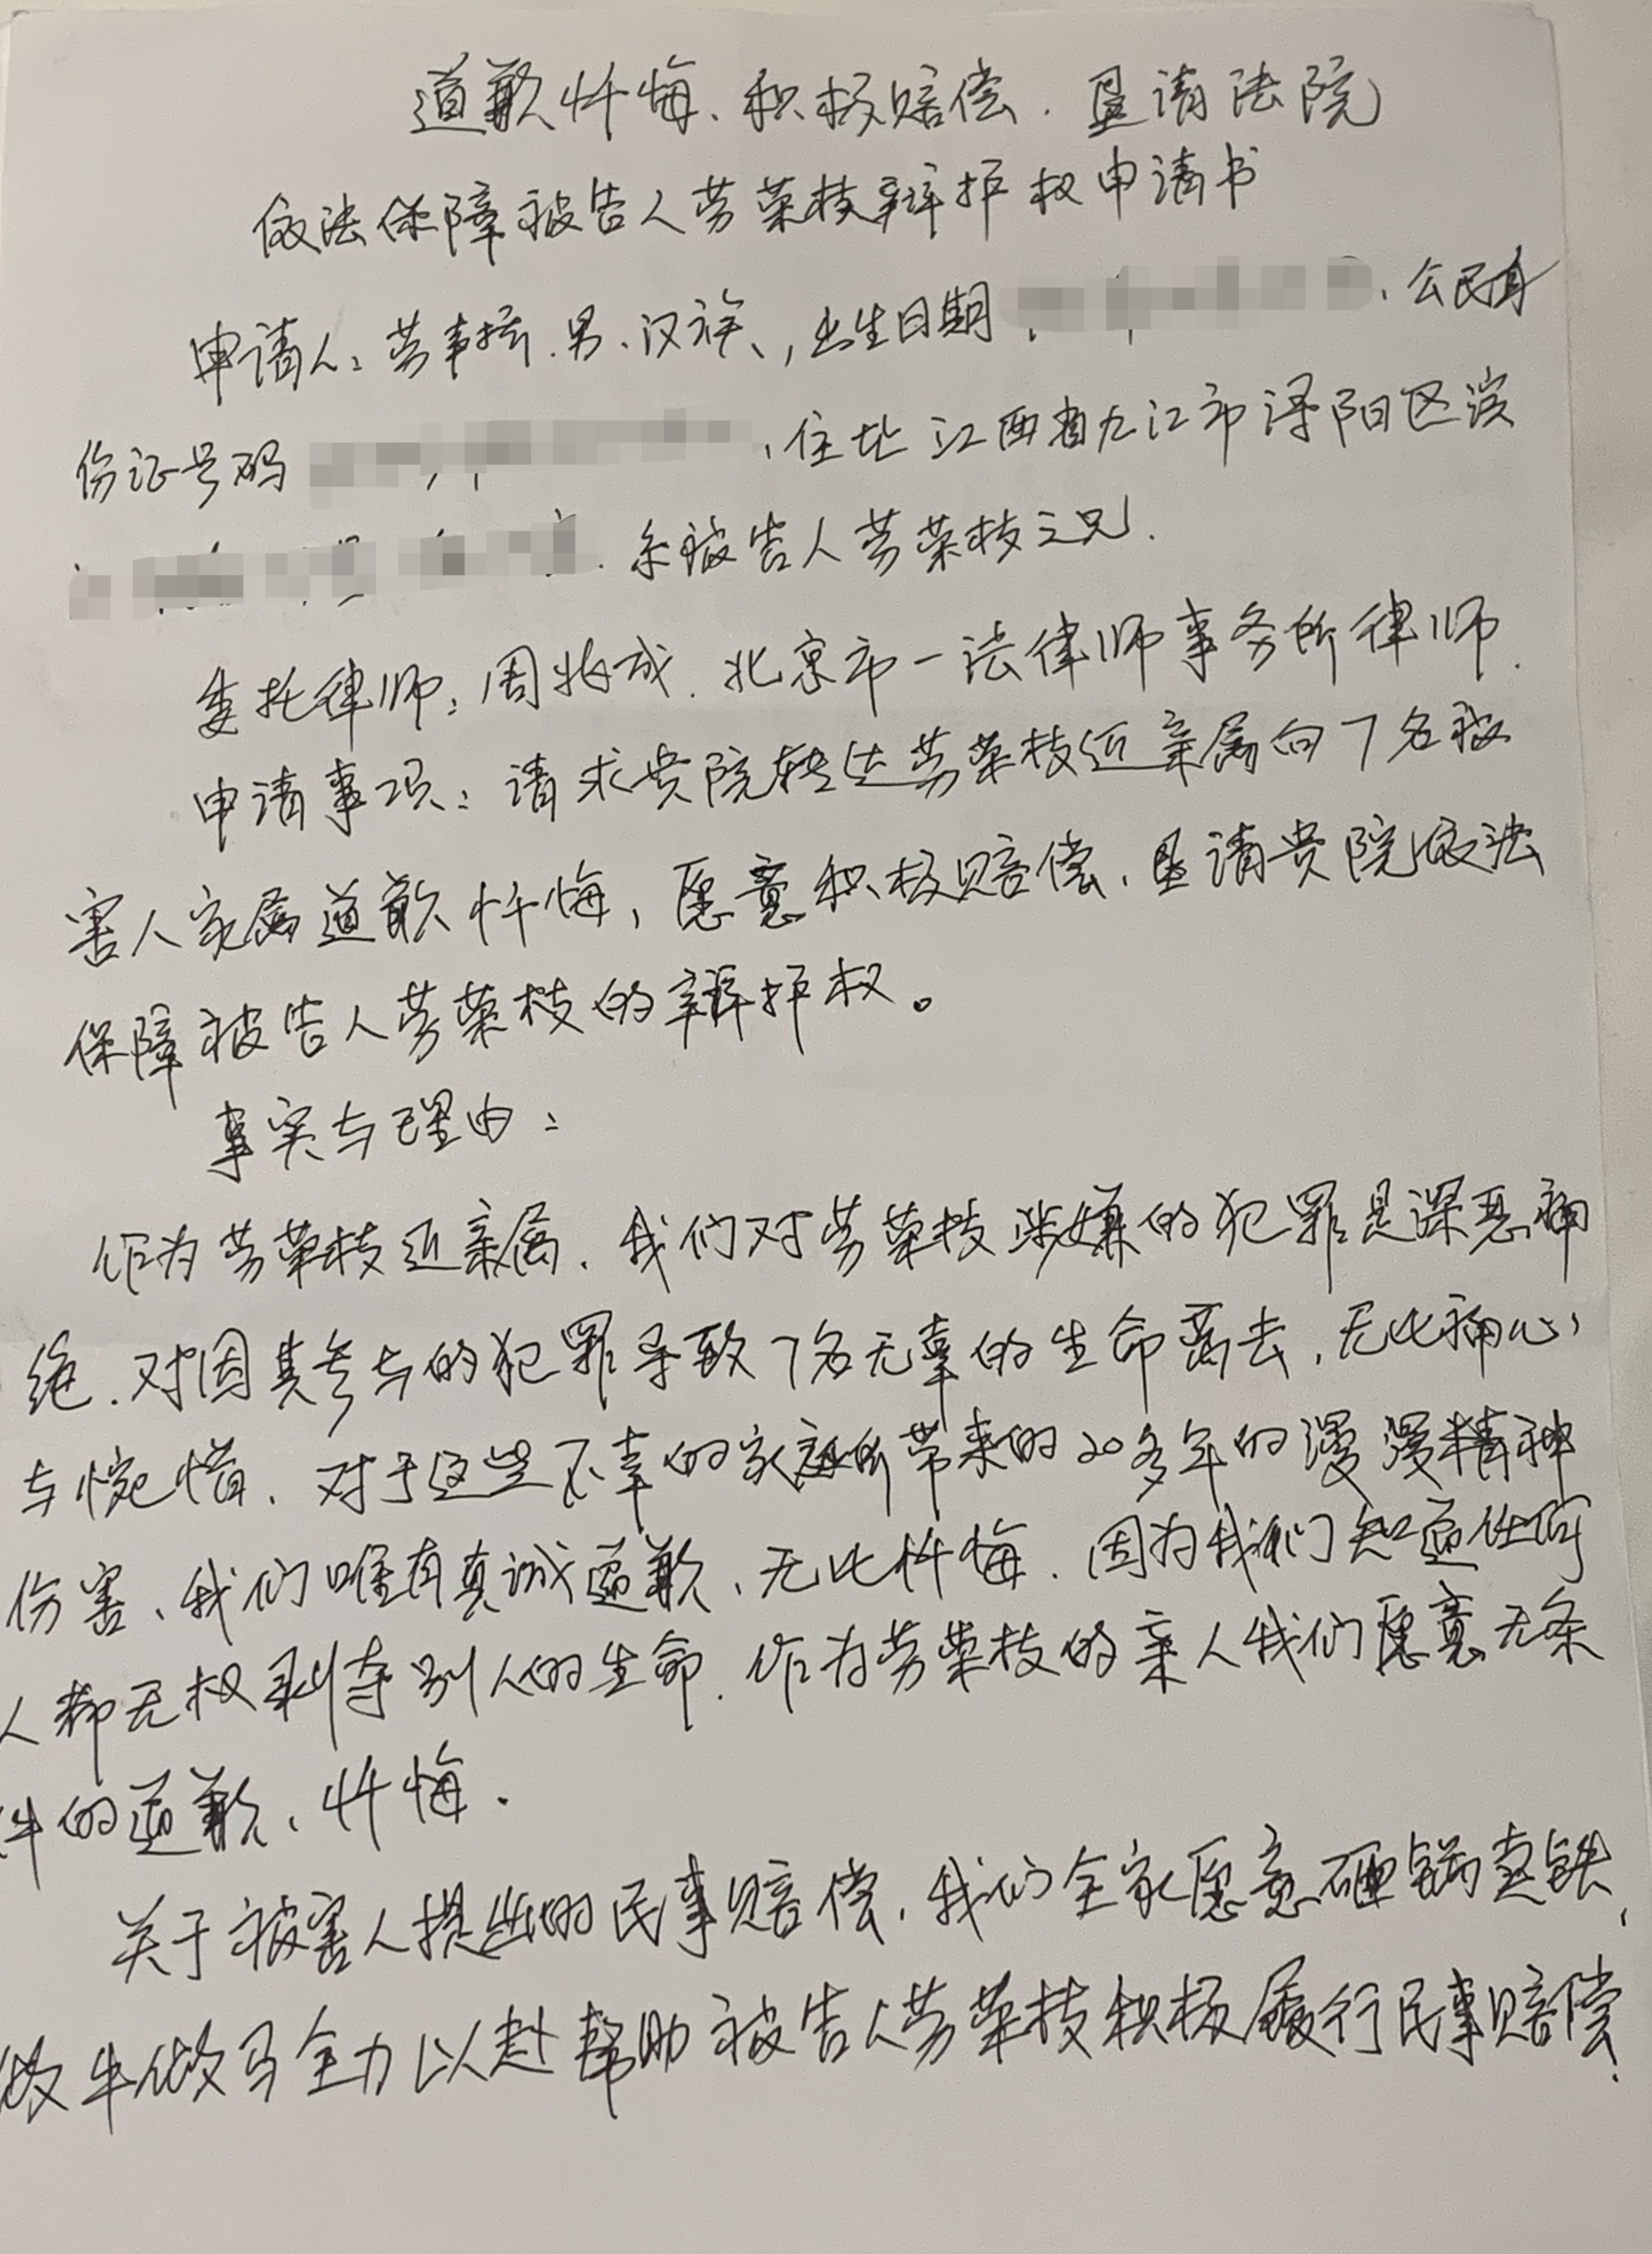 道歉忏悔、积极赔偿、垦请法院
依法保障被告人劳荣枝辩护权申请书
申请人:劳 男、汉族、,出生日期 、公民身
份证号码 、住址江西省九江市浔阳区滨
系被告人劳荣枝之兄.
委托律师:周兆成.北京市一法律师事务所律师.
申请事项:请求贵院转达劳荣枝近亲属向7名被
害人家属道歉忏悔,愿意积极赔偿、垦请贵院依法
保障被告人劳荣枝的辩护权。
事实与理由:
作为劳荣枝近亲属、我们对劳荣枝涉嫌的犯罪是深恶痛
绝.对因其参与的犯罪导致7名无辜的生命离去,无比痛心
与惋惜、对于这些不幸的家庭所带来的20多年的漫漫精神
伤害、我们唯有真诚道歉、无比忏悔.因为我们知道任何
人都无权剥夺别人的生命.作为劳荣枝的亲人我们愿意无条
件的道歉、忏悔.
关于被害人提出的民事赔偿,我们全家愿意砸锅卖铁、
做牛做马全力以赴帮助被告人劳荣枝积极履行民事赔偿.